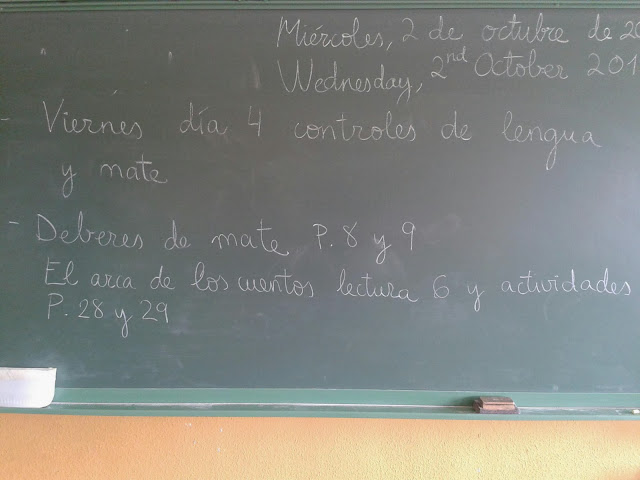 Miércoles, 2 de octubre de 20
Wednesday, 2nd October 201
- Viernes día 4 controles de lengua
y mate
- Deberes de mate P. 8 y 9
El arca de los cuentos lectura 6 y actividades
P. 28 y 29